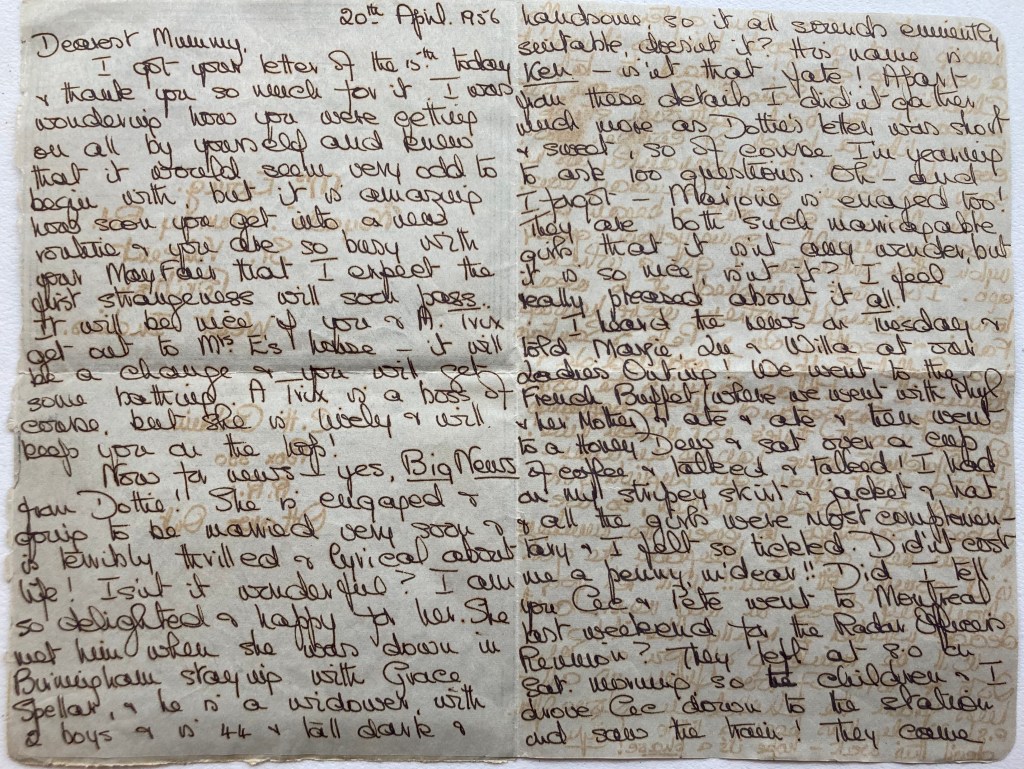 20th April. 1956
Dearest Mummy,
I got your letter of the 15th today
& thank you so much for it. I was
wondering how you were getting
on all by yourself and knew
that it would seem very odd to
begin with, but it is amazing
how soon you get into a new
routine & you are so busy with
your May Fair that I expect the
first strangeness will soon pass.
It will be nice if you & A. Trix
get out to Mrs Es house – it will
be a change & you will get
some bathing. A Trix is a boss of
course, but she is lively & will
keep you on the hop!
Now for news – yes, Big News
from Dottie! She is engaged &
going to be married very soon &
is terribly thrilled & lyrical about
life! Isn't it wonderful? I am
so delighted & happy for her. She
met him when she was down in
Birmingham staying with Grace
Spellar, & he is a widower, with
2 boys & is 44 & tall dark &
handsome, so it all sounds eminently
suitable, doesn't it? His name is
Ken – isn't that fate! Apart
from these details I didn't gather
much more as Dottie's letter was short
& sweet, so of course I'm yearning
to ask 100 questions. Oh – and
I forgot – Marjorie is engaged too!
They are both such marriageable
girls that it isn't any wonder, but
it is so nice isn't it? I feel
really pleased about it all!
I heard the news on Tuesday &
told Marie, & Willa at our
Ladies Outing! We went to the
French Buffet (where we went with Phyl
& her Mother) & ate & ate & then went
to a Honey Dew & sat over a cup
of coffee & talked & talked! I had
on my stripey skirt & jacket & hat
& all the girls were most complimen-
tary & I felt so tickled. Didn't cost
me a penny m'dear!! Did I tell
you Cec & Pete went to Montreal
last weekend for the Radar Officers
Reunion? They left at 8.0 on
Sat. morning so the children & I
drove Cec down to the station
and saw the train! They came